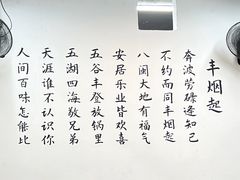 丰烟起
奔波劳碌逢知己
不约而同丰烟起
八闽大地有福气
安居乐业皆欢喜
五谷丰登放锅里
五湖四海敬兄弟
天涯谁不认识你
人间百味怎能比